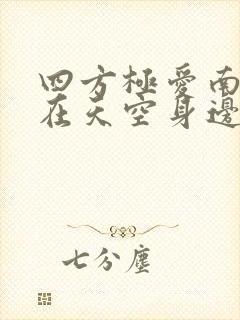 四方極愛南
在天空身邊
七分塵